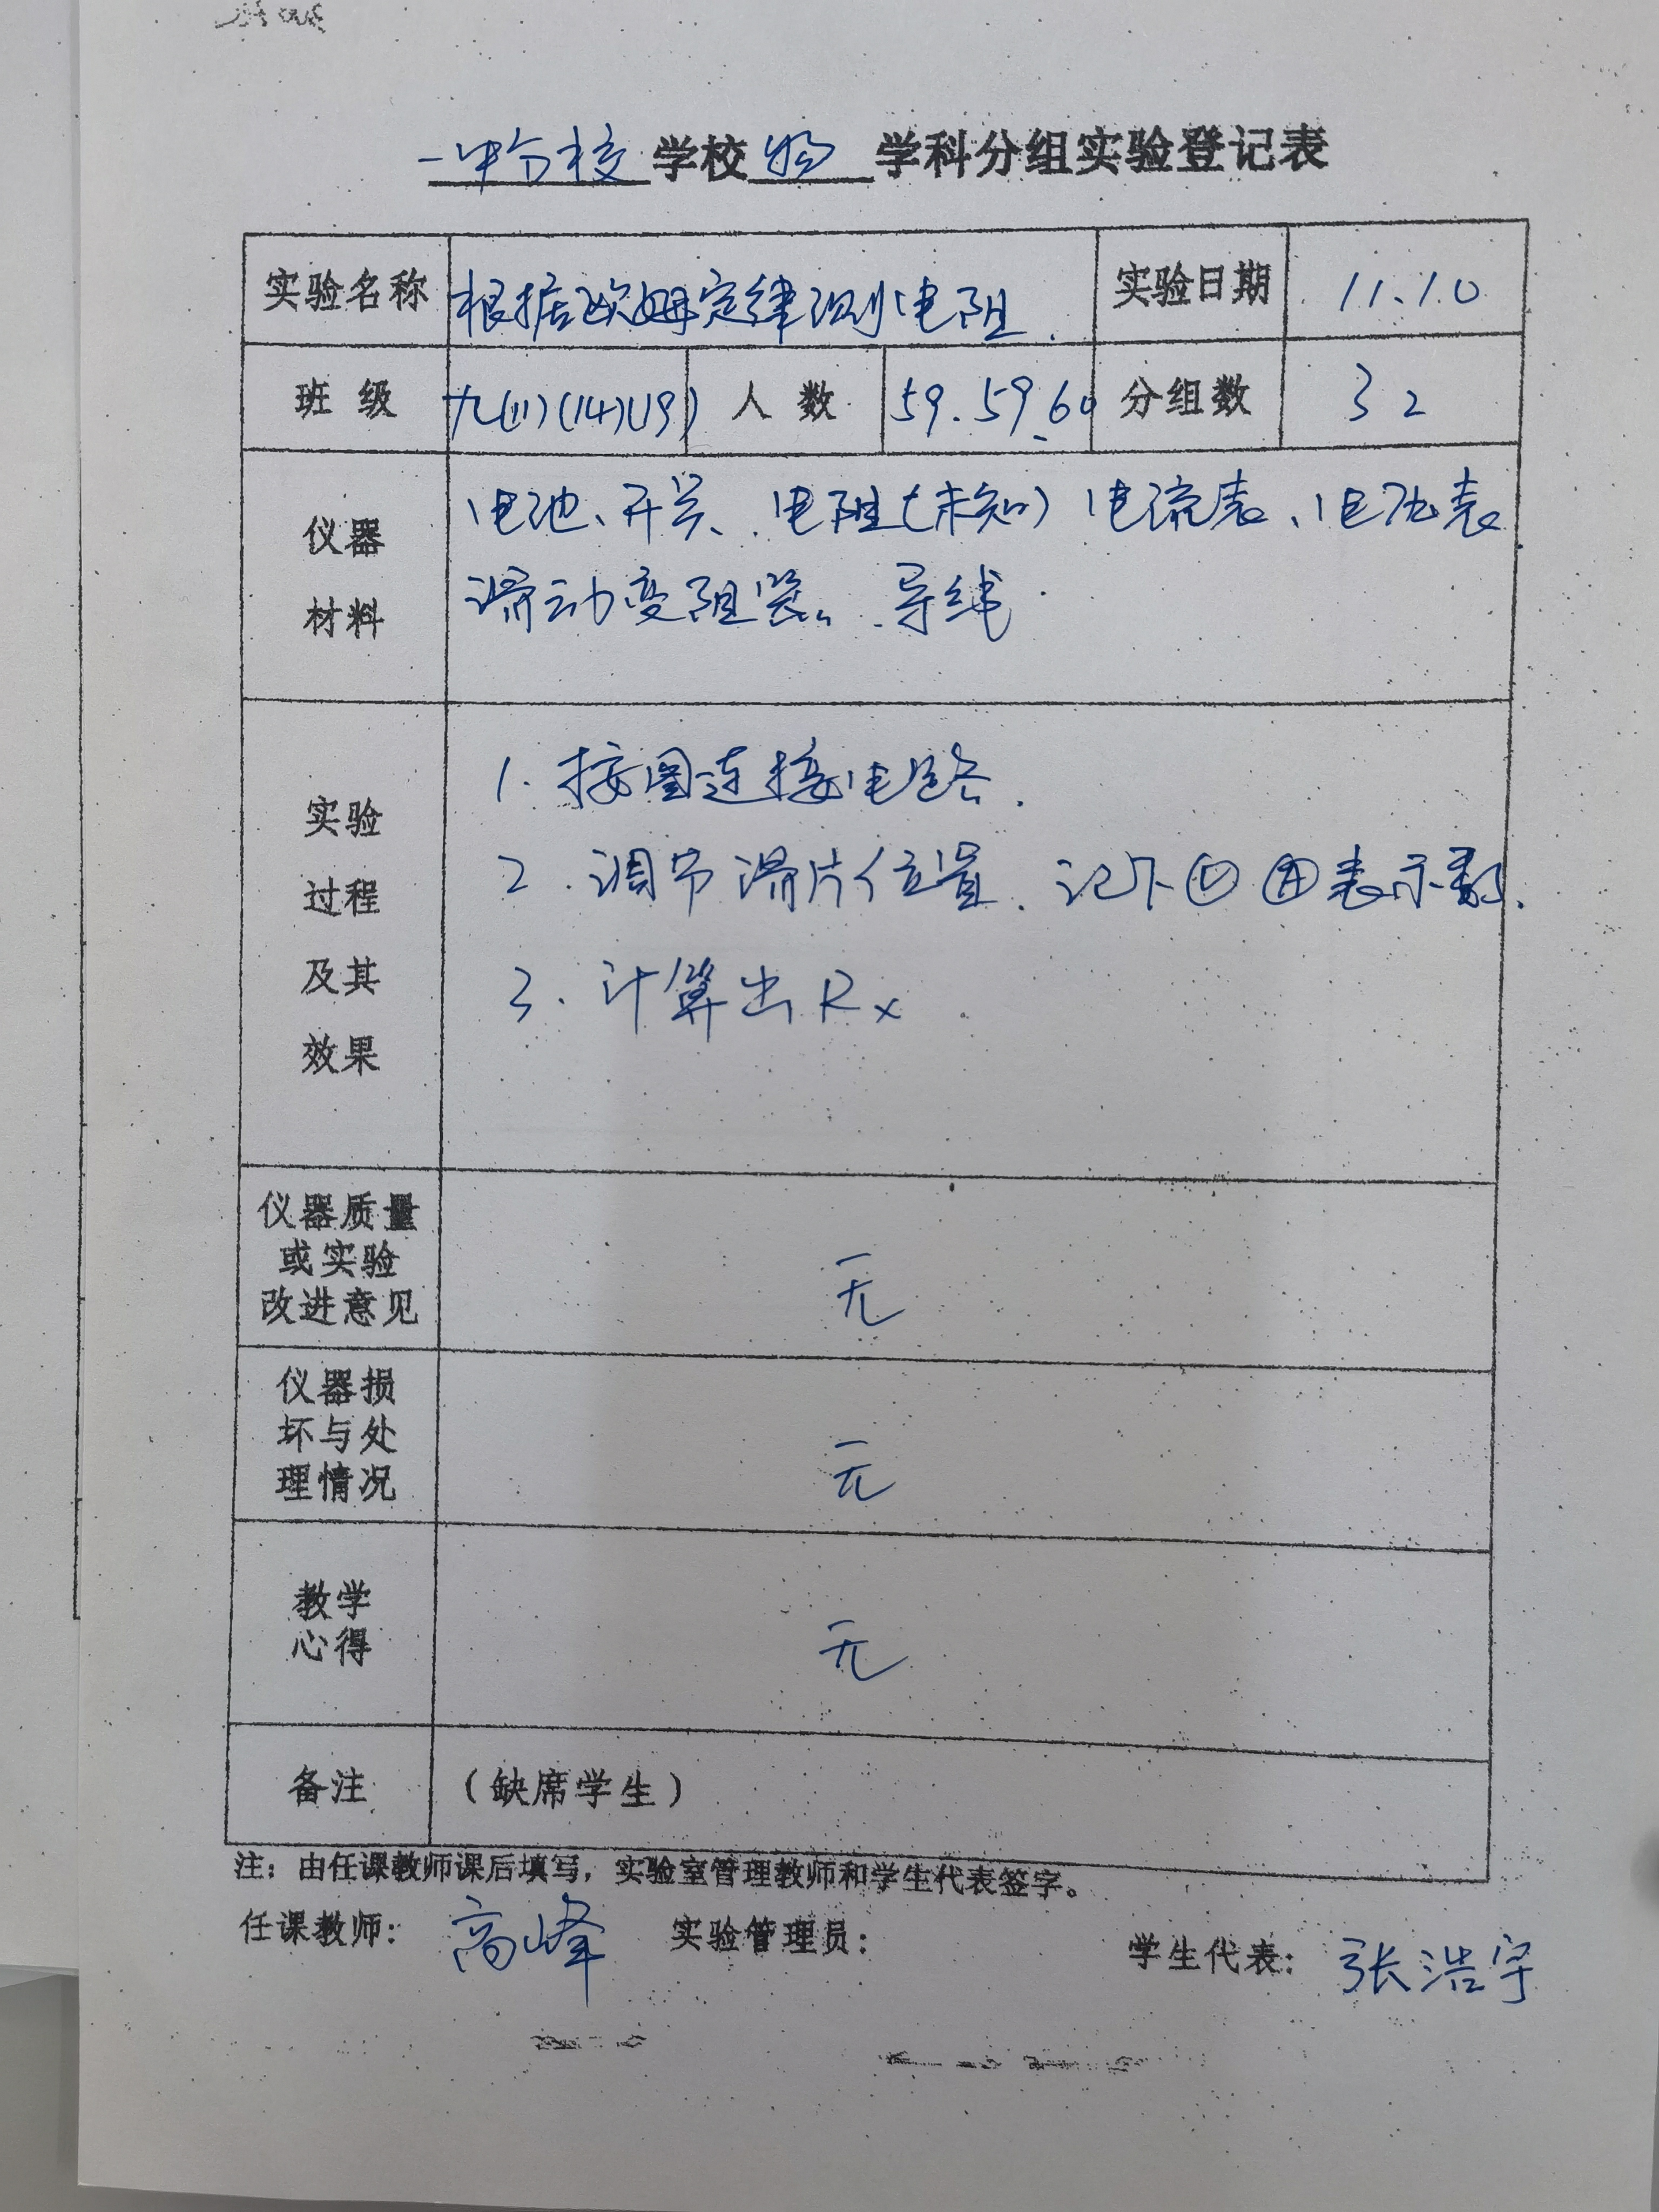 一中分校学校物学科分组实验登记表
实验名称 根据欧姆定律测电阻. 实验日期 11.10
班级 九(11)(14)(19) 人数 59.59.60 分组数 32
仪器材料 电池、开关、电阻(未知) 电流表、电压表
滑动变阻器、导线
实验过程及其效果
1. 按图连接电路.
2. 调节滑片位置. 记下Ⓥ Ⓐ表示数.
3. 计算出Rx
仪器质量或实验改进意见 无
仪器损坏与处理情况 无
教学心得 无
备注 (缺席学生)
注：由任课教师课后填写，实验室管理教师和学生代表签字。
任课教师： 高峰 实验管理员： 学生代表： 张浩宇